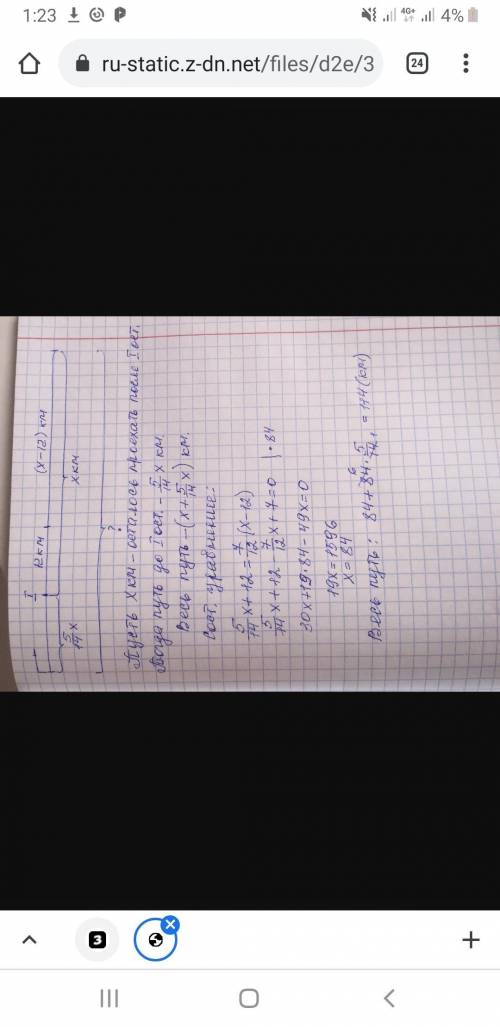 1:23
4G+
4%
ru-static.z-dn.net/files/d2e/3
24
I
5/14 x
12 км
(x-12) км
x км
?
Пусть x км - осталось проехать после I ост.
Тогда путь до I ост. - 5/14 x км.
Весь путь - (x + 5/14 x) км.
Сост. уравнение:
5/14 x + 12 = 7/12 (x-12)
5/14 x + 12 - 7/12 x + 7 = 0 | · 84
30x + 19·84 - 49x = 0
19x = 1596
x = 84
Весь путь: 84 + 84 · 5/14 = 114 (км)
3